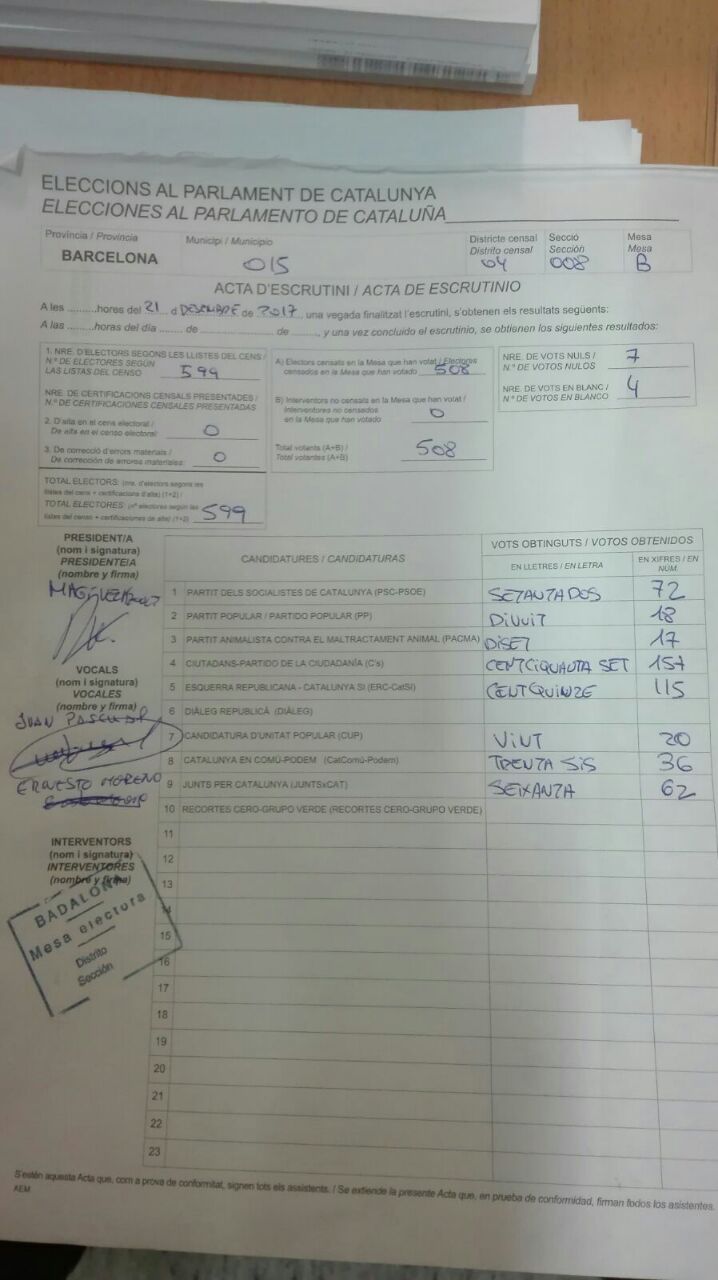 ELECCIONS AL PARLAMENT DE CATALUNYA
ELECCIONES AL PARLAMENTO DE CATALUÑA
Província / Provincia
BARCELONA
Municipi / Municipio
015
Districte censal
Distrito censal
04
Secció
Sección
008
Mesa
Mesa
B
ACTA D'ESCRUTINI / ACTA DE ESCRUTINIO
A les ..........hores del 21 d DESEMBRE de 2017, una vegada finalitzat l'escrutini, s'obtenen els resultats següents:
A las ..........horas del día ........ de .......................... de ........, y una vez concluido el escrutinio, se obtienen los siguientes resultados:
1. NRE. D'ELECTORS SEGONS LES LLISTES DEL CENS /
N.º DE ELECTORES SEGÚN
LAS LISTAS DEL CENSO 599
NRE. DE CERTIFICACIONS CENSALS PRESENTADES /
N.º DE CERTIFICACIONES CENSALES PRESENTADAS
2. D'alta en el cens electoral /
De alta en el censo electoral: 0
3. De correcció d'errors materials /
De corrección de errores materiales: 0
TOTAL ELECTORS: (nre. d'electors segons les
llistes del cens + certificacions d'alta) (1+2) /
TOTAL ELECTORES: (nº electores según las
listas del censo + certificaciones de alta) (1+2) 599
A) Electors censats en la Mesa que han votat / Electores
censados en la Mesa que han votado 508
B) Interventors no censats en la Mesa que han votat /
Interventores no censados
en la Mesa que han votado 0
Total votants (A+B) /
Total votantes (A+B) 508
NRE. DE VOTS NULS /
N.º DE VOTOS NULOS 7
NRE. DE VOTS EN BLANC /
N.º DE VOTOS EN BLANCO 4
PRESIDENT/A
(nom i signatura)
PRESIDENTE/A
(nombre y firma)
VOCALS
(nom i signatura)
VOCALES
(nombre y firma)
JUAN PASCUAL
ERNESTO MORENO
INTERVENTORS
(nom i signatura)
INTERVENTORES
(nombre y firma)
BADALONA
Mesa electora
Distrito
Sección
CANDIDATURES / CANDIDATURAS
VOTS OBTINGUTS / VOTOS OBTENIDOS
EN LLETRES / EN LETRA
EN XIFRES / EN NÚM.
1 PARTIT DELS SOCIALISTES DE CATALUNYA (PSC-PSOE) SETANTADOS 72
2 PARTIT POPULAR / PARTIDO POPULAR (PP) DIVUIT 18
3 PARTIT ANIMALISTA CONTRA EL MALTRACTAMENT ANIMAL (PACMA) DISET 17
4 CIUTADANS-PARTIDO DE LA CIUDADANÍA (C's) CENTCIQUANTA SET 157
5 ESQUERRA REPUBLICANA - CATALUNYA SÍ (ERC-CatSí) CENTQUINZE 115
6 DIÀLEG REPUBLICÀ (DIÀLEG)
7 CANDIDATURA D'UNITAT POPULAR (CUP) VINT 20
8 CATALUNYA EN COMÚ-PODEM (CatComú-Podem) TRENTA SIS 36
9 JUNTS PER CATALUNYA (JUNTSxCAT) SEIXANTA 62
10 RECORTES CERO-GRUPO VERDE (RECORTES CERO-GRUPO VERDE)
11
12
13
14
15
16
17
18
19
20
21
22
23
S'estén aquesta Acta que, com a prova de conformitat, signen tots els assistents. / Se extiende la presente Acta que, en prueba de conformidad, firman todos los asistentes.
AEM